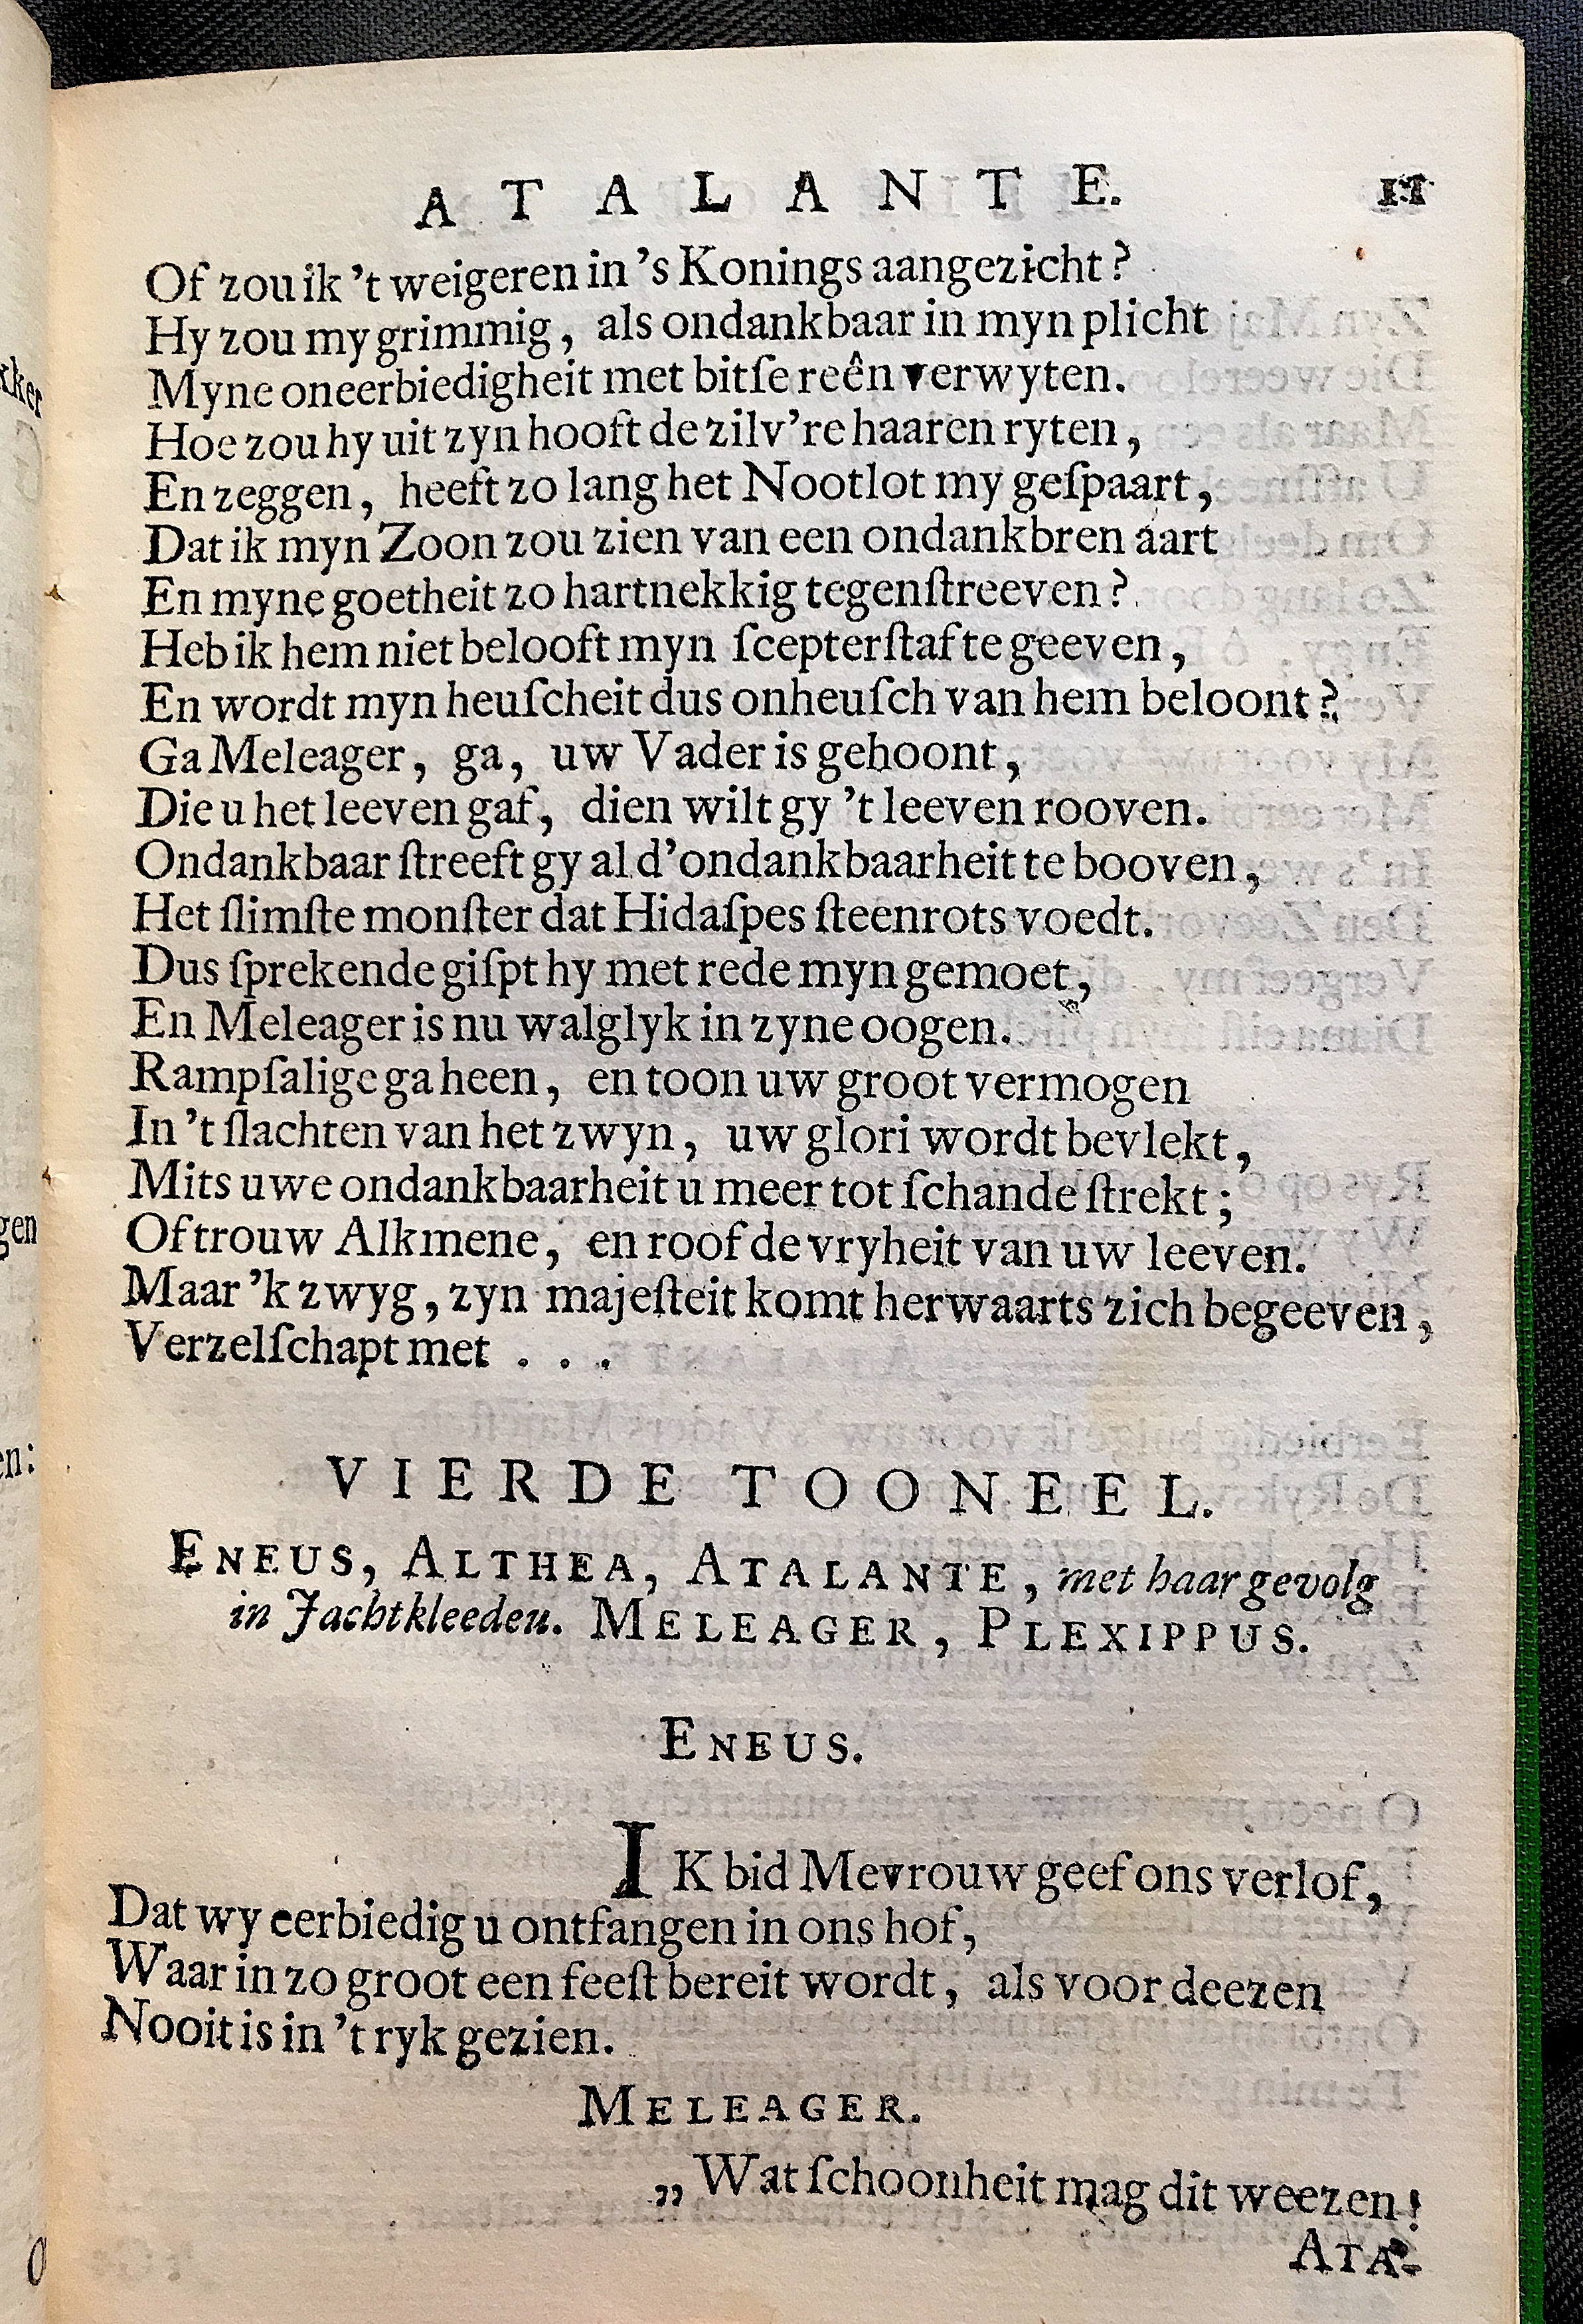 ATALANTE. 11
Of zou ik 't weigeren in 's Konings aangezicht?
Hy zou my grimmig, als ondankbaar in myn plicht
Myne oneerbiedigheit met bitſe reên verwyten.
Hoe zou hy uit zyn hooft de zilv're haaren ryten,
En zeggen, heeft zo lang het Nootlot my geſpaart,
Dat ik myn Zoon zou zien van een ondankbren aart
En myne goetheit zo hartnekkig tegenſtreeven?
Heb ik hem niet belooft myn ſcepterſtaf te geeven,
En wordt myn heuſcheit dus onheuſch van hem beloont?
Ga Meleager, ga, uw Vader is gehoont,
Die u het leeven gaf, dien wilt gy 't leeven rooven.
Ondankbaar ſtreeft gy al d'ondankbaarheit te booven,
Het ſlimſte monſter dat Hidaſpes ſteenrots voedt.
Dus ſprekende giſpt hy met rede myn gemoet,
En Meleager is nu walglyk in zyne oogen.
Rampſalige ga heen, en toon uw groot vermogen
In 't ſlachten van het zwyn, uw glori wordt bevlekt,
Mits uwe ondankbaarheit u meer tot ſchande ſtrekt;
Of trouw Alkmene, en roof de vryheit van uw leeven.
Maar 'k zwyg, zyn majeſteit komt herwaarts zich begeeven,
Verzelſchapt met . . .
VIERDE TOONEEL.
ENEUS, ALTHEA, ATALANTE, met haar gevolg
in Jachtkleeden. MELEAGER, PLEXIPPUS.
ENEUS.
IK bid Mevrouw geef ons verlof,
Dat wy eerbiedig u ontfangen in ons hof,
Waar in zo groot een feeſt bereit wordt, als voor deezen
Nooit is in 't ryk gezien.
MELEAGER.
„ Wat ſchoonheit mag dit weezen!
ATA-